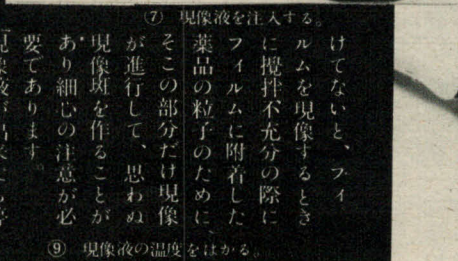 ⑦ 現像液を注入する。
けてないと、フィ
ルムを現像するとき
に攪拌不充分の際に
フィルムに附着した
薬品の粒子のために、
そこの部分だけ現像
が進行して、思わぬ
現像斑を作ることが
あり細心の注意が必
要であります。
⑨ 現像液の温度をはかる。